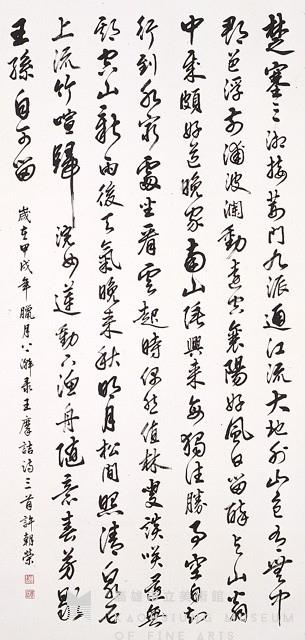 楚塞三湘接荊門九派通江流天地外山色有無中
郡邑浮前浦波瀾動遠空襄陽好風日留醉與山翁
中歲頗好道晚家南山陲興來每獨往勝事空自知
行到水窮處坐看雲起時偶然值林叟談咲還無
期空山新雨後天氣晚來秋明月松間照清泉石
上流竹喧歸浣女蓮動下漁舟隨意春芳歇
王孫自可留
歲在甲戌年臘月下澣录王摩詰詩三首許朝榮
高雄市立美術館
KAOHSIUNG MUSEUM
OF FINE ARTS